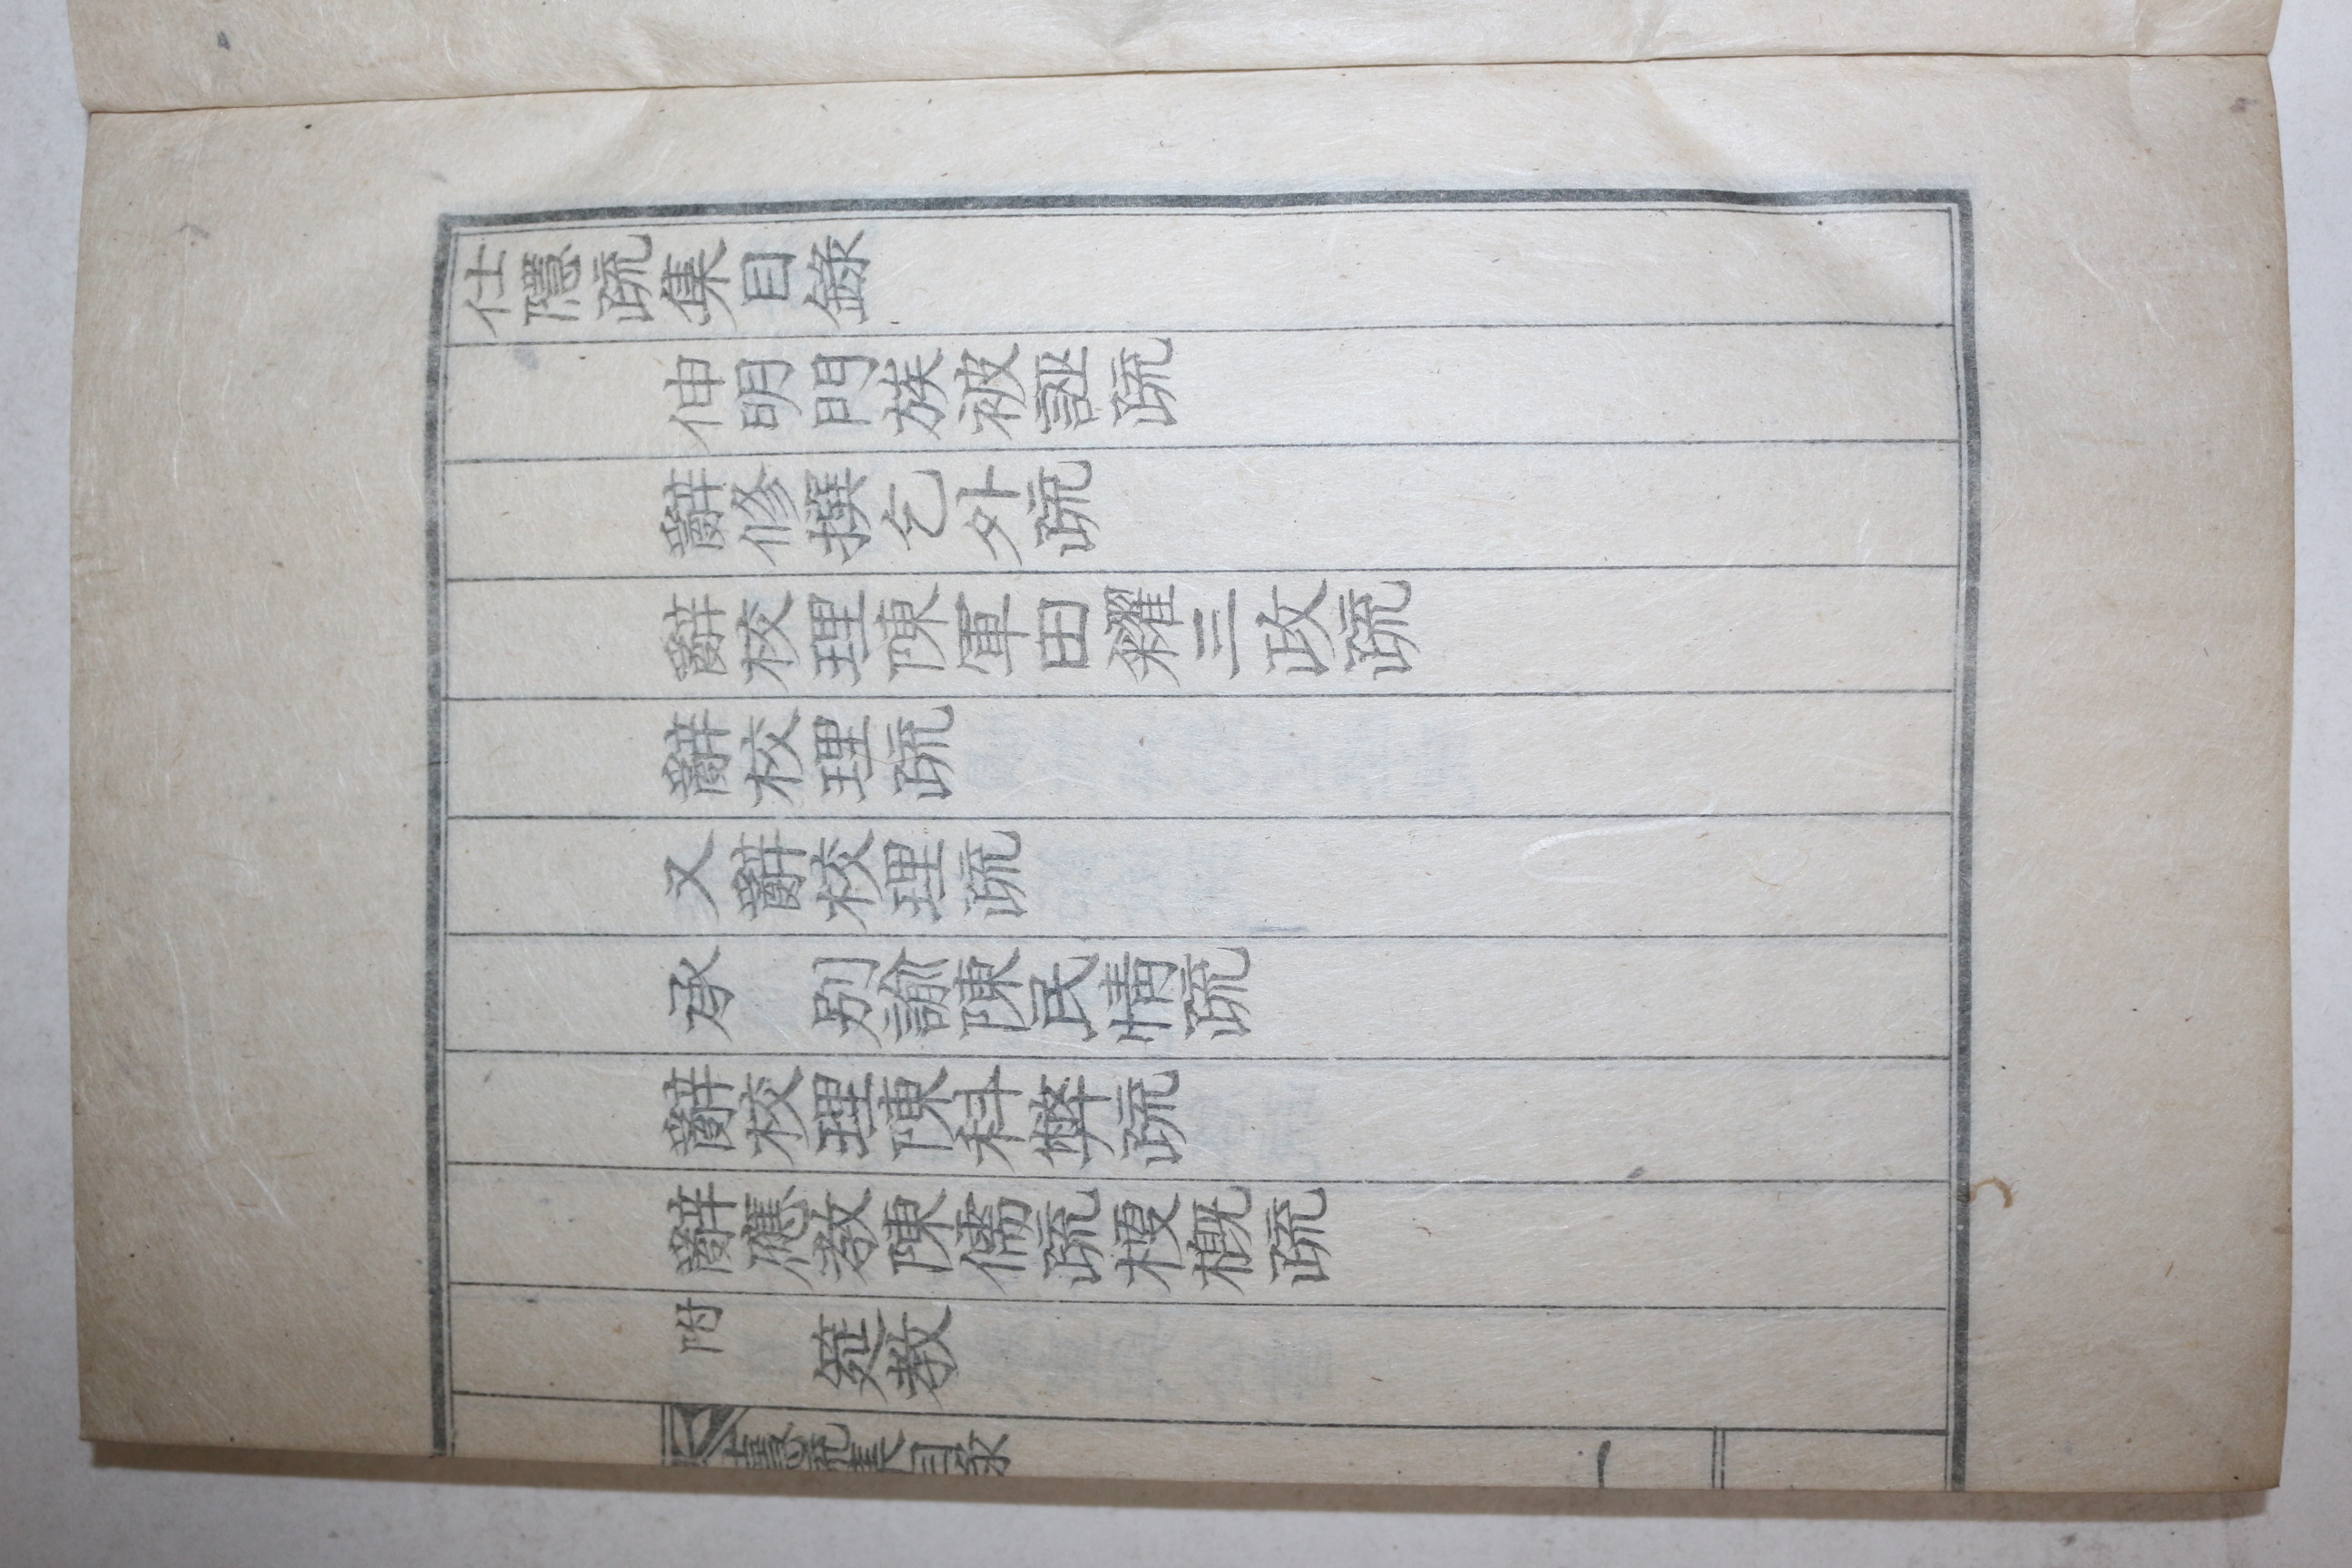 仕隱疏集目錄
伸明門族被誣疏
辭修撰乞外疏
辭校理陳軍田糶三政疏
辭校理疏
又辭校理疏
承 別諭陳民情疏
辭校理陳科弊疏
辭應敎陳儒疏梗槪疏
附 筵敎
仕隱疏集目錄 一